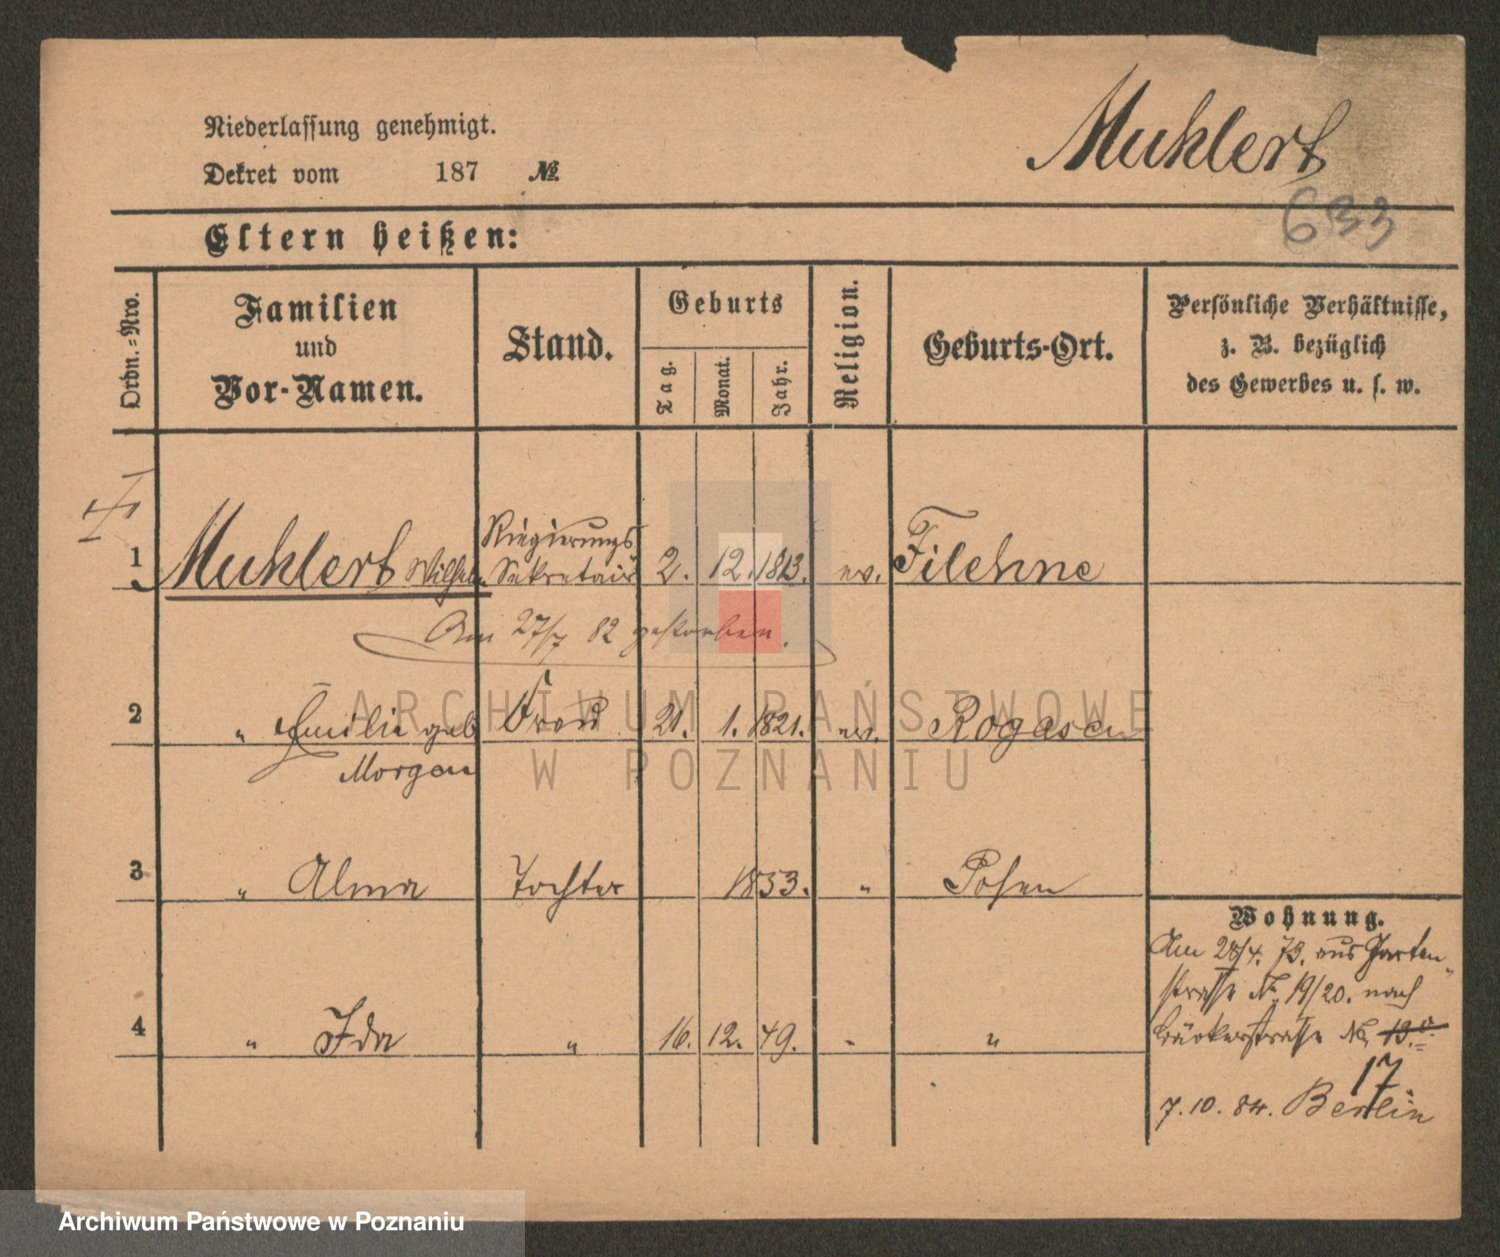 Niederlassung genehmigt.
Dekret vom 187 №
Muhlert
633
Eltern heißen:
Ordn.-Nro.
Familien
und
Vor-Namen.
Stand.
Geburts
Tag.
Monat.
Jahr.
Religion.
Geburts-Ort.
Persönliche Verhältnisse,
z. B. bezüglich
des Gewerbes u. s. w.
1 Muhlert Wilhelm Regierungs Sekretair 2. 12. 1813. ev. Filehne
Am 27/7 82 gestorben.
2 " Emilie geb Frau 21. 1. 1821. ev. Rogasen
Morgen
3 " Alma Tochter 1853. " Posen
4 " Ida " 16. 12. 49. "
Wohnung.
Am 28/4. 73. aus Garten
strasse No 19/20. nach
Bäckerstrasse No 13.
17.
7.10.84. Berlin
ARCHIWUM PAŃSTWOWE
W POZNANIU
Archiwum Państwowe w Poznaniu